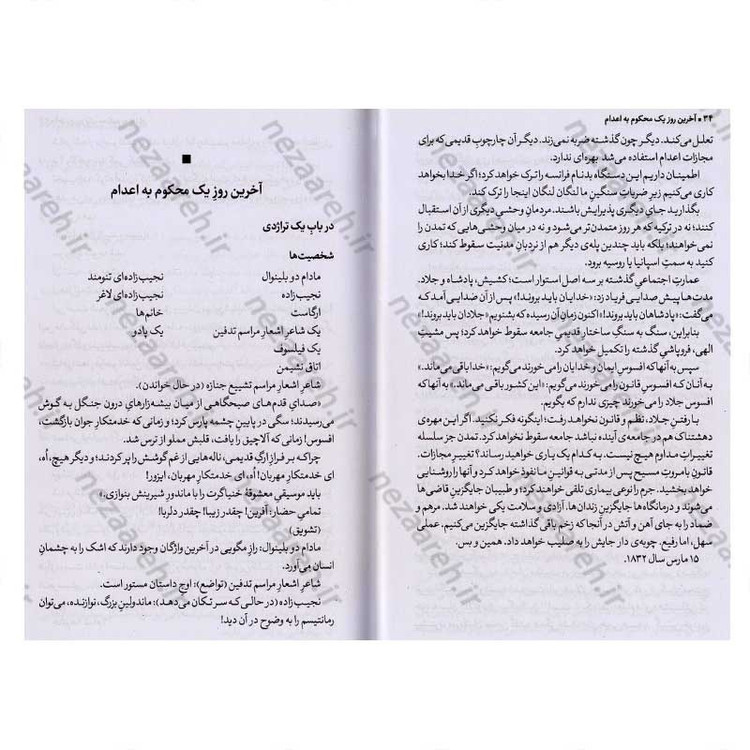 ۳۴ ■ آخرین روز یک محکوم به اعدام
تعلل می‌کند. دیگر چون گذشته ضربه نمی‌زند. دیگر آن چارچوبِ قدیمی که برای
مجازات اعدام استفاده می‌شد بهره‌ای ندارد.
اطمینان داریم این دستگاه بدنام فرانسه را ترک خواهد کرد؛ اگر خدا بخواهد
کاری می‌کنیم زیر ضرباتِ سنگینِ ما لنگان لنگان اینجا را ترک کند.
بگذارید جای دیگری پذیرایش باشند. مردمانِ وحشیِ دیگری از آن استقبال
کنند؛ نه در ترکیه که هر روز متمدن‌تر می‌شود و نه در میان وحشی‌هایی که تمدن را
نمی‌خواهند؛ بلکه باید چندین پله‌ی دیگر هم از نردبانِ مدنیت سقوط کند؛ کاری
کنید به سمتِ اسپانیا یا روسیه برود.
عمارتِ اجتماعیِ گذشته بر سه اصل استوار است: کشیش، پادشاه و جلاد.
مدت‌ها پیش صدایی فریاد زد: «خدایان باید بروند!» پس از آن صدایی آمد که
می‌گفت: «پادشاهان باید بروند! اکنون زمانِ آن رسیده که بشنویم «جلادان باید بروند!»
بنابراین، سنگ به سنگِ ساختار قدیمیِ جامعه سقوط خواهد کرد؛ پس مشیتِ
الهی، فروپاشیِ گذشته را تکمیل خواهد کرد.
سپس به آنها که افسوسِ ایمان و خدایان را می‌خورند می‌گویم: «خدا باقی می‌ماند.»
به آنان که افسوسِ قانون را می‌خورند می‌گویم: «این کشور باقی می‌ماند.» به آنها که
افسوس جلاد را می‌خورند چیزی ندارم که بگویم.
با رفتنِ جلاد، نظم و قانون نخواهد رفت؛ اینگونه فکر نکنید. اگر این مهره‌ی
دهشتناک هم در جامعه‌ی آینده نباشد جامعه سقوط نخواهد کرد. تمدن جز سلسله
تغییراتِ مداوم هیچ نیست. به کدام یک یاری خواهید رساند؟ تغییرِ مجازات.
قانونِ بامروتِ مسیح پس از مدتی به قوانین ما نفوذ خواهد کرد و آنها را روشنایی
خواهد بخشید. جرم را نوعی بیماری تلقی خواهند کرد؛ و طبیبان جایگزینِ قاضی‌ها
خواهند شد و درمانگاه‌ها جایگزین زندان‌ها. آزادی و سلامت یکی خواهند شد. مرهم و
ضماد را به جای آهن و آتش در آنجا که زخم باقی گذاشته جایگزین می‌کنیم. عملی
سهل، اما رفیع. چوبه‌ی دار جایش را به صلیب خواهد داد. همین و بس.
۱۵ مارس سال ۱۸۳۲.
آخرین روزِ یک محکوم به اعدام
در بابِ یک تراژدی
شخصیت‌ها
مادام دو بلینوال نجیب‌زاده‌ای تنومند
نجیب‌زاده نجیب‌زاده‌ای لاغر
ارگاست خانم‌ها
یک شاعر اشعارِ مراسم تدفین یک پادو
یک فیلسوف
اتاق نشیمن
شاعرِ اشعارِ مراسم تشییع جنازه (در حال خواندن).
«صدایِ قدم‌های صبحگاهی از میان بیشه‌زارهای درون جنگل به گوش
می‌رسیدند؛ سگی در پایینِ چشمه پارس کرد؛ و زمانی که خدمتکارِ جوان بازگشت،
افسوس! زمانی که آلاچیق را یافت، قلبش مملو از ترس شد.
چرا که بر فرازِ ارگِ قدیمی، ناله‌هایی از غم گوشش را پر کردند؛ و دیگر هیچ، اُه،
ای خدمتکارِ مهربان! اُه، ای خدمتکارِ مهربان، ایزور!
باید موسیقیِ معشوقهٔ خنیاگرت را با ماندورِ شیرینش بنوازی.»
تمامیِ حضار: آفرین! چقدر زیبا! چقدر دلربا!
(تشویق)
مادام دو بلینوال: رازِ مگویی در آخرین واژگان وجود دارند که اشک را به چشمانِ
انسان می‌آورد.
شاعر اشعارِ مراسم تدفین (تواضع): اوجِ داستان مستور است.
نجیب‌زاده (در حالی که سر تکان می‌دهد): ماندولینِ بزرگ، نوازنده، می‌توان
رمانتیسم را به وضوح در آن دید!
nezaareh.ir